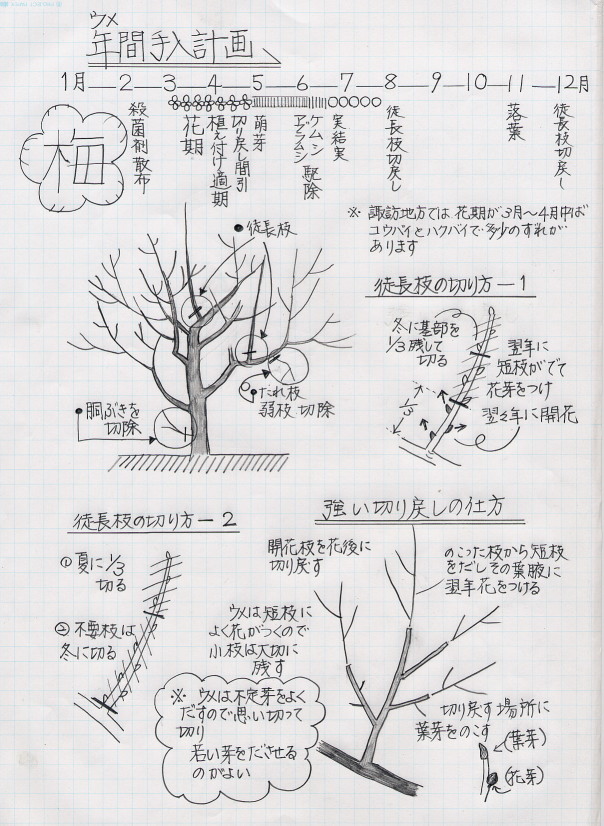 ウメ
年間手入計画
1月 2 3 4 5 6 7 8 9 10 11 12月
梅
殺菌剤散布
花期
植え付け適期
切り戻し間引
萌芽
アブラムシ
ケムシ
駆除
実結実
徒長枝切戻し
落葉
徒長枝切戻し
※ 諏訪地方では花期が3月〜4月中ば
コウバイとハクバイで多少のずれが
あります
●徒長枝
●だれ枝
弱枝切除
●胴ぶきを
切除
徒長枝の切り方-1
冬に基部を
1/3残して
切る
翌年に
短枝がでて
花芽をつけ
翌々年に開花
1/3
徒長枝の切り方-2
①夏に1/3
切る
②不要枝は
冬に切る
強い切り戻しの仕方
開花枝を花後に
切り戻す
のこった枝から短枝
をだしその葉腋に
翌年花をつける
ウメは短枝に
よく花がつくので
小枝は大切に
残す
※ ウメは不定芽をよく
だすので思い切って
切り
若い芽をださせる
のがよい
切り戻す場所に
葉芽をのこす
(葉芽)
(花芽)